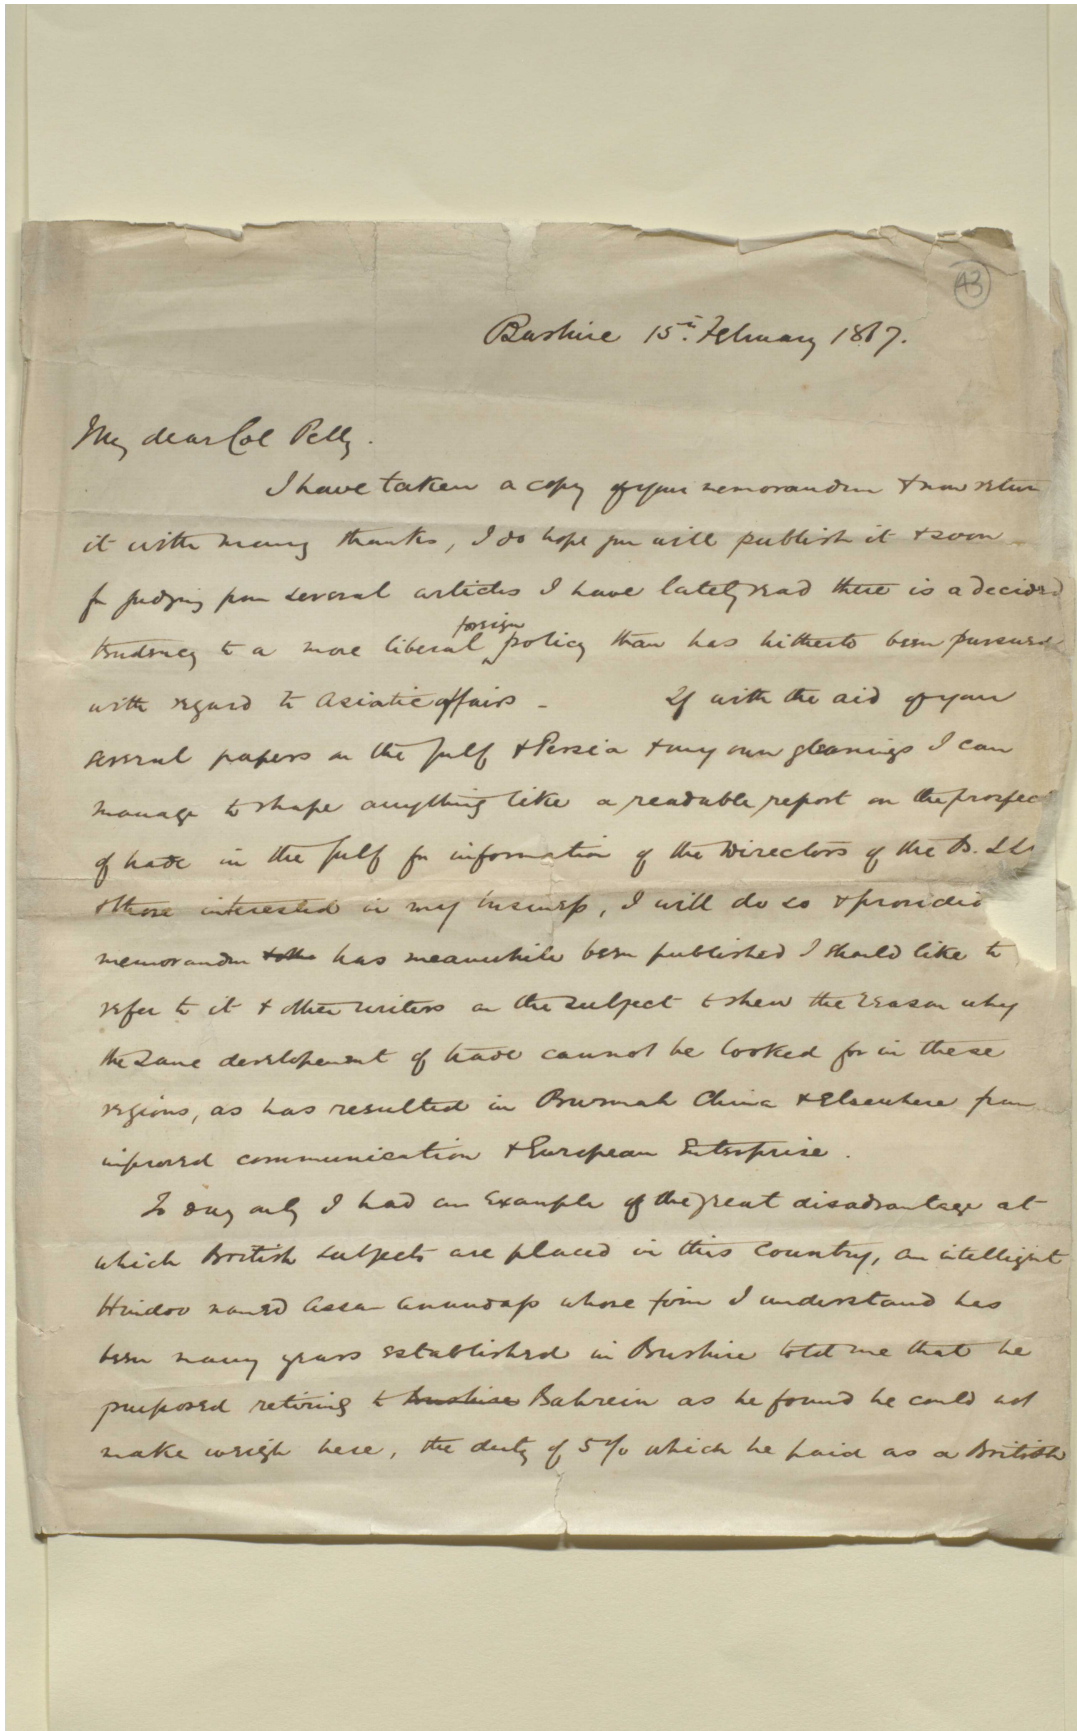 43
Bushire 15th. February 1867.
My dear Col Pelly.
I have taken a copy of your memorandum & now return
it with many thanks, I do hope you will publish it & soon
for judging from several articles I have lately read there is a decided
tendency to a more liberal foreign policy than has hitherto been pursued
with regard to Asiatic affairs - If with the aid of your
several papers on the Gulf & Persia & my own gleanings I can
manage to shape anything like a readable report on the prospec
of trade in the Gulf for information of the Directors of the B.
& those interested in my business, I will do so & provided
memorandum has meanwhile been published I should like to
refer to it & other writers on the subject to shew the reason why
the same developement of trade cannot be looked for in these
regions, as has resulted in Burmah China & Elsewhere from
improved communication & European Enterprise.
To day only I had an Example of the great disadvantage at
which British subjects are placed in this Country, an intelligent
Hindoo named whose firm I understand has
been many years established in Bushire told me that he
purposed retiring to Bushire Bahrein as he found he could not
make weigh here, the duty of 5% which he paid as a British